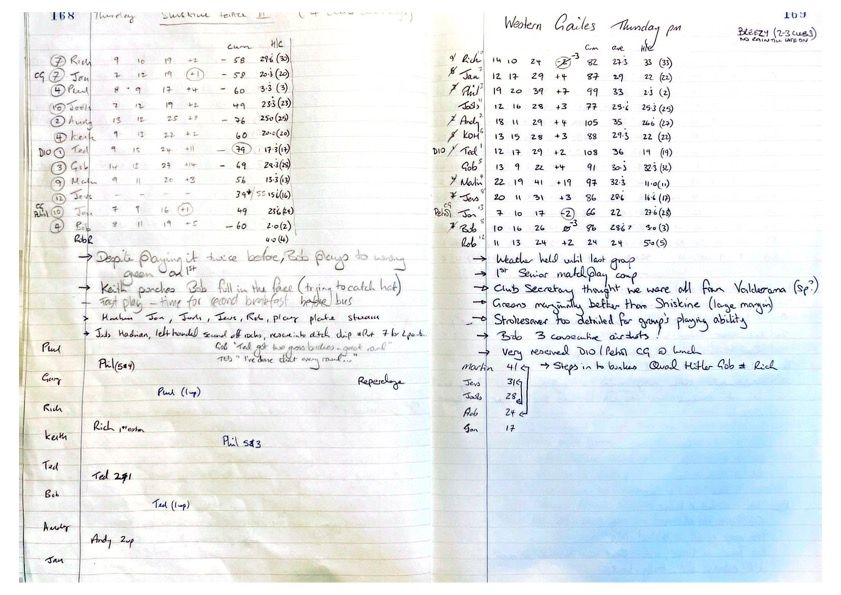 168
Thursday Shiskine
cum H/C
7 Rich 9 10 19 +2 - 58
CG 7 Jan 7 12 19 +1 - 58 20.5 (20)
4 Paul 8 9 17 +4 - 60 3.3 (3)
10 Jools 7 12 19 +2 49 23.5 (23)
2 Andy 13 12 25 - 76 25.0 (25)
4 Keith 9 13 22 +2 60 20.0 (20)
DIO 1 Ted 9 15 24 +11 - 79 17.3 (17)
3 Gob 14 13 27 +14 - 69
9 Martin 9 11 20 +3 56 13.3 (13)
12 Jevs - - - 39*
CG 10 Jon 7 9 16 +1 49
4 Bob 8 11 19 +5 - 60 2.0 (2)
Rob R 4.0 (4)
→ Despite playing it twice before, Bob plays to wrong
green on 1st
→ Keith punches Bob full in the face (trying to catch hat)
- Fast play - time for second breakfast before bus
Jon, Jools, Jevs, Rob, play plate
left handed second off rocks, into ditch chip + Putt 7 for 2 points
Gob "Ted got two gross birdies - great round"
Ted: "I've done that every round..."
Paul
Phil (5&4)
Repercharge
Gary
Paul (1up)
Rich
Rich
Keith
Phil 5&3
Ted
Ted 2&1
Bob
Ted (1up)
Andy
Andy 2up
Jan
169
Western Gailes Thursday pm
BREEZY (2-3 CLUBS)
NO RAIN TILL LATE ON
cum ave H/C
Rich 14 10 24 -3 82 27.3 33 (33)
Jan 12 17 29 +4 87 29 22 (22)
Phil 19 20 39 +7 99 33 2.3 (2)
Jools 12 16 28 +3 77 25.6 25.3 (25)
Andy 18 11 29 +4 105 35 26.6 (27)
KOH 13 15 28 +3 88 29.3 22 (22)
DIO Ted 12 17 29 +2 108 36 19 (19)
Gob 13 9 22 +4 91 30.3 32.3 (32)
Martin 22 19 41 +19 97 32.3 11.0 (11)
Jevs 20 11 31 +3 86 28.6 16.6 (17)
CG Jon 7 10 17 -2 66 22 27.6 (28)
Bob 10 16 26 -3 86 28.6 3.0 (3)
Rob 11 13 24 +2 24 24 5.0 (5)
→ Weather held until last group
→ 1st Senior matchplay comp
→ Club Secretary thought we were all from Valderama (sp?)
→ Greens marginally better than Shiskine (large margin)
→ Strokesaver too detailed for group's playing ability
→ Bob 3 consecutive airshots!
→ Very reserved DIO/Petrol CG @ lunch
Martin 41 → Steps in to bunkers Quad Hitler Gob & Rich
Jevs 31
Jools 28
Rob 24
Jon 17